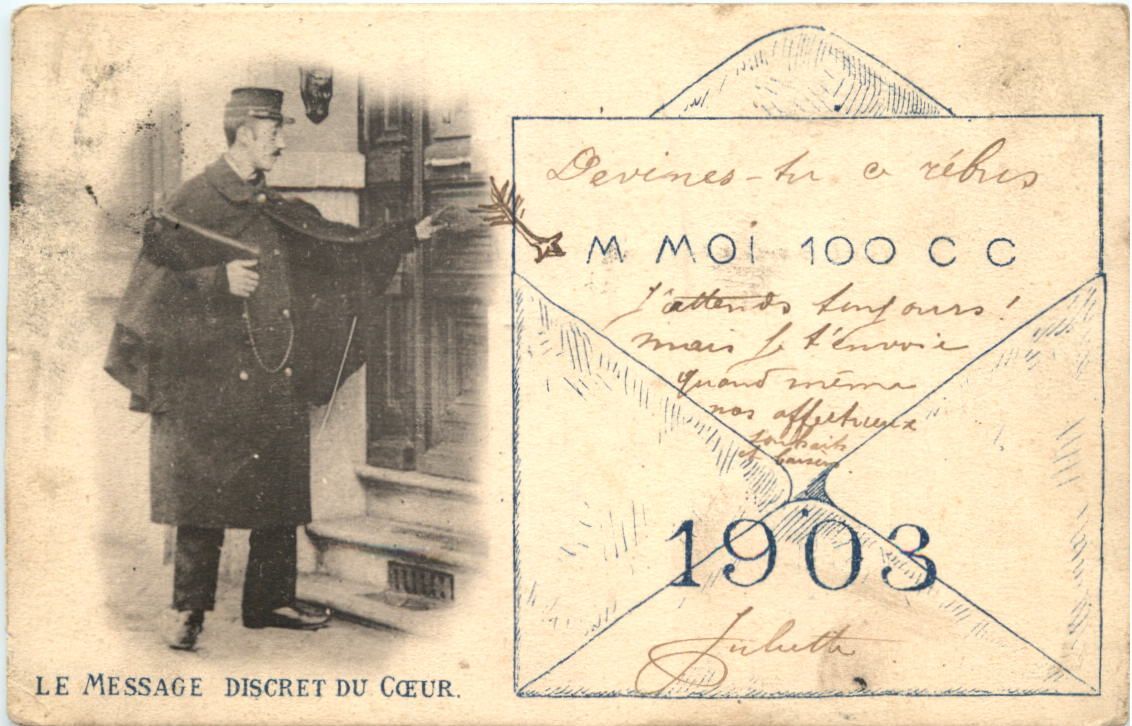 Devines-tu ce rébus
M MOI 100 C C
J'attends toujours !
mais je t'envoie
quand même
nos affectueux
souhaits
et baisers
1903
Juliette
LE MESSAGE DISCRET DU CŒUR.